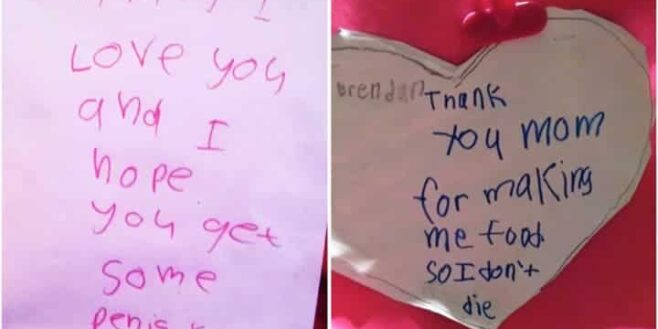 I
LOVE you
and I
hope
you get
some
penis
Brendan
Thank
you mom
for making
me food
so I don't
die